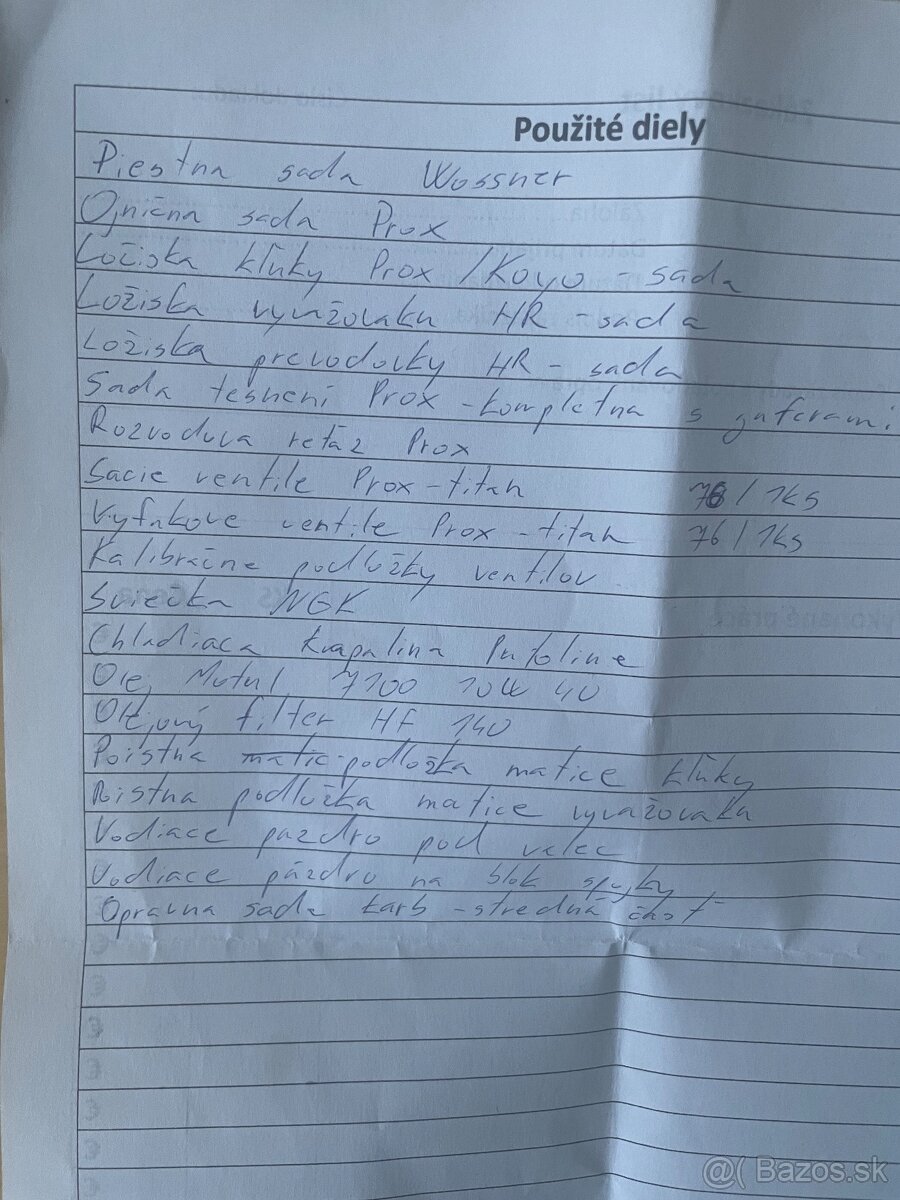 Použité diely
Piestna sada Wossner
Ojničná sada Prox
Ložiska kľuky Prox / Koyo - sada
Ložiska vyvažovaku HR - sada
Ložiska prevodovky HR - sada
Sada tesnení Prox - kompletna s guferami
Rozvodova reťaz Prox
Sacie ventile Prox - titan 76 / 1ks
Vyfukove ventile Prox - titan 76 / 1ks
Kalibračne podložky ventilov
Sviečka NGK
Chladiaca kvapalina Putoline
Olej Motul 7100 10W 40
Olejový filter HF 140
Poistna podložka matice kľuky
Poistna podložka matice vyvažovaka
Vodiace puzdro pod valec
Vodiace púzdro na blok spojky
Opravna sada karb - stredná časť
@( Bazos.sk